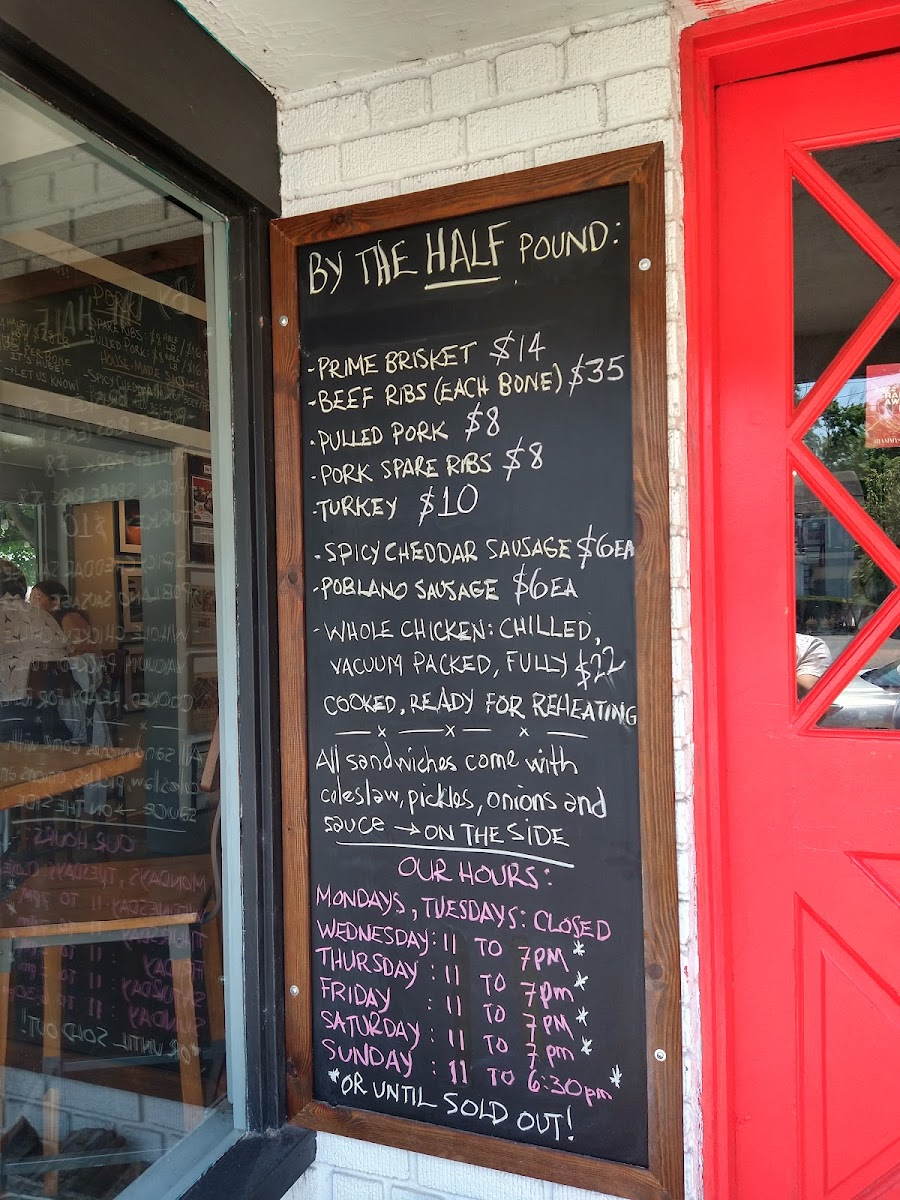 BY THE HALF POUND:
-PRIME BRISKET $14
-BEEF RIBS (EACH BONE) $35
-PULLED PORK $8
-PORK SPARE RIBS $8
-TURKEY $10
-SPICY CHEDDAR SAUSAGE $6EA
-POBLANO SAUSAGE $6EA
-WHOLE CHICKEN: CHILLED,
VACUUM PACKED, FULLY $22
COOKED, READY FOR REHEATING
—x—x—x—
All sandwiches come with
coleslaw, pickles, onions and
sauce → ON THE SIDE
OUR HOURS:
MONDAYS, TUESDAYS: CLOSED
WEDNESDAY: 11 TO 7PM*
THURSDAY : 11 TO 7pm*
FRIDAY : 11 TO 7PM*
SATURDAY : 11 TO 7pm*
SUNDAY : 11 TO 6:30pm*
*OR UNTIL SOLD OUT!